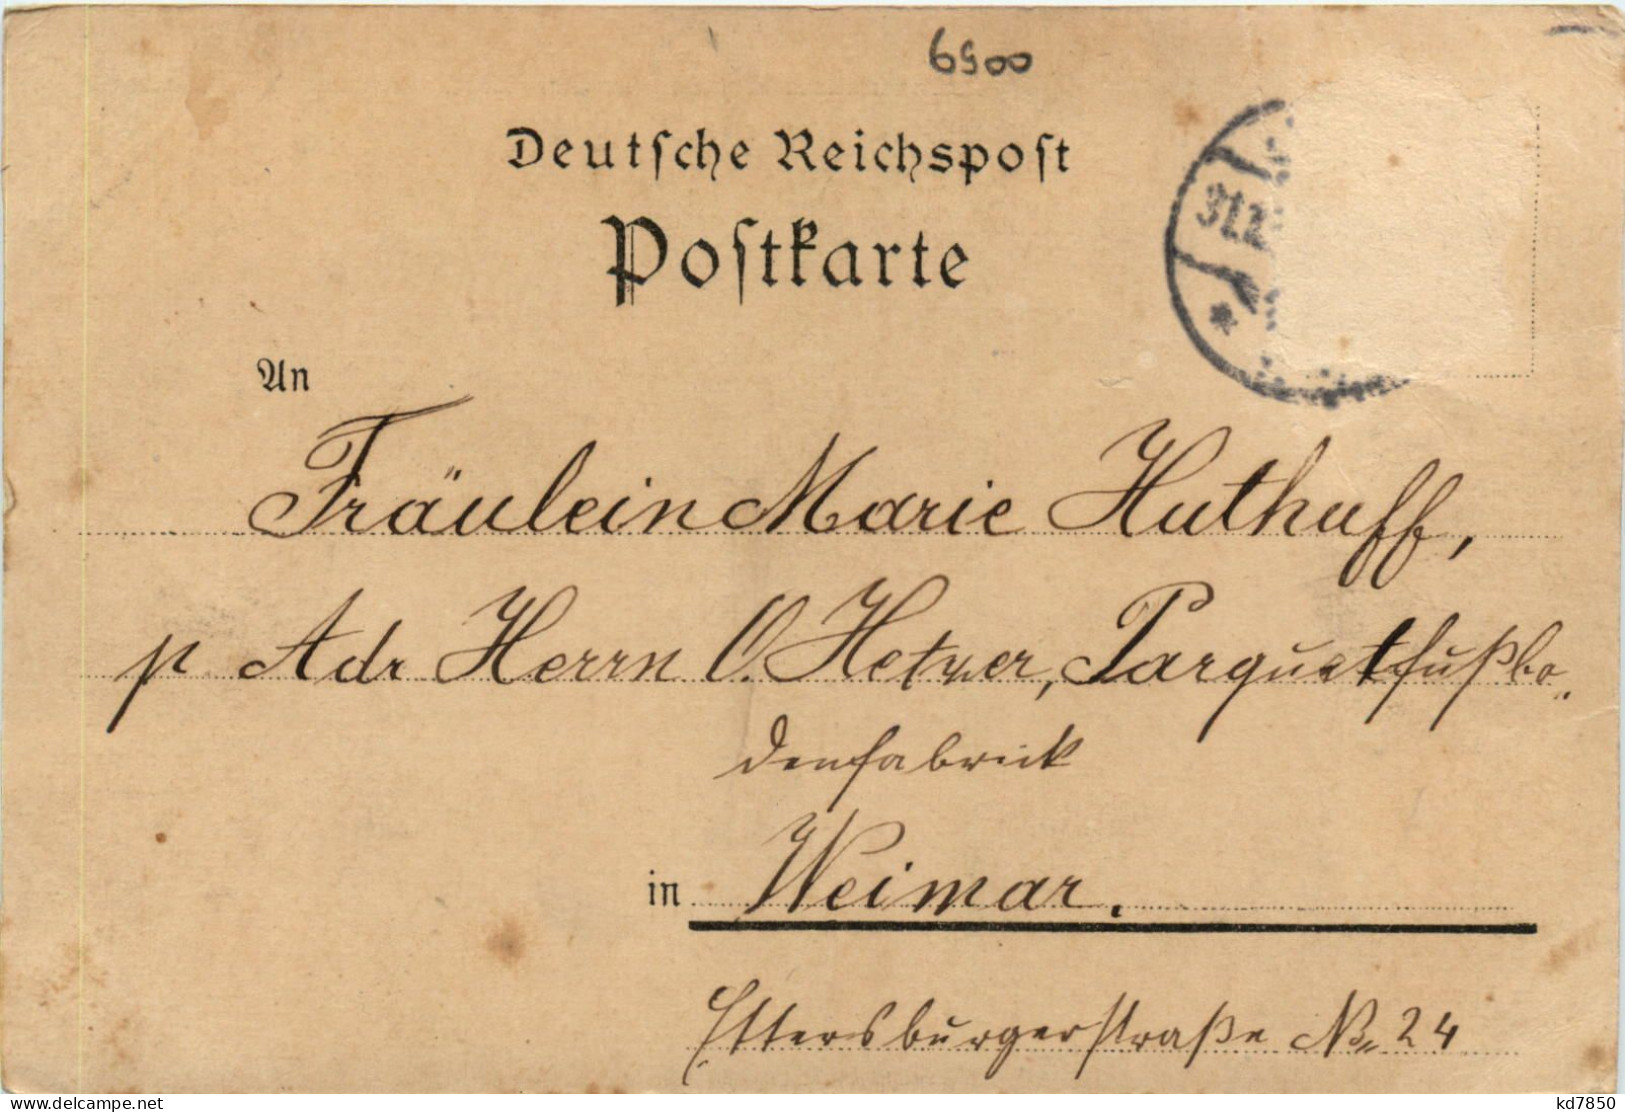 6500
Deutsche Reichspost
Postkarte
31.12.
An
Fräulein Marie Huthuff,
p Adr Herrn O. Hetzer, Parquetfußbo„
denfabrick
in Weimar.
Ettersburgerstraße No 24
www.delcampe.net
kd7850